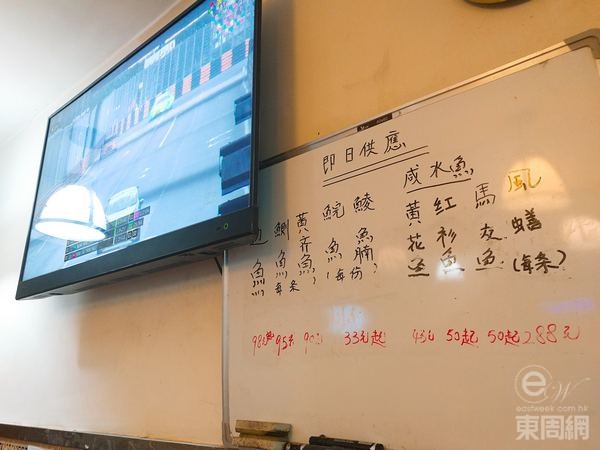 即日供應
魚
鯽魚
黃
魚
(每条)
鯇魚
鯪魚腩
(每份)
咸水魚
黃花
紅衫魚
馬友魚
風鱔
(每条)
95元
33元起
43元
50起
50起
288元
eastweek.com.hk
東周網